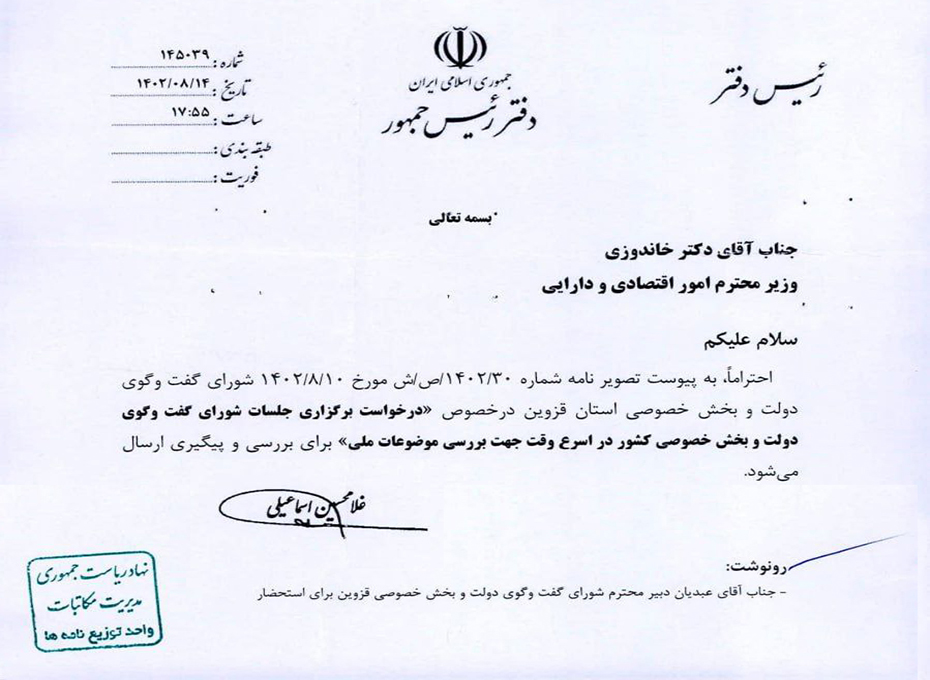 رئیس دفتر
جمهوری اسلامی ایران
دفتر رئیس جمهور
شماره: ۱۴۵۰۳۹
تاریخ: ۱۴۰۲/۰۸/۱۴
ساعت: ۱۷:۵۵
طبقه بندی:
فوریت:
بسمه تعالی
جناب آقای دکتر خاندوزی
وزیر محترم امور اقتصادی و دارایی
سلام علیکم
احتراماً، به پیوست تصویر نامه شماره ۱۴۰۲/۳۰/ص/ش مورخ ۱۴۰۲/۸/۱۰ شورای گفت وگوی
دولت و بخش خصوصی استان قزوین درخصوص «درخواست برگزاری جلسات شورای گفت وگوی
دولت و بخش خصوصی کشور در اسرع وقت جهت بررسی موضوعات ملی» برای بررسی و پیگیری ارسال
می‌شود.
غلامحسین اسماعیلی
رونوشت:
- جناب آقای عبدیان دبیر محترم شورای گفت وگوی دولت و بخش خصوصی قزوین برای استحضار
نهاد ریاست جمهوری
مدیریت مکاتبات
واحد توزیع نامه ها